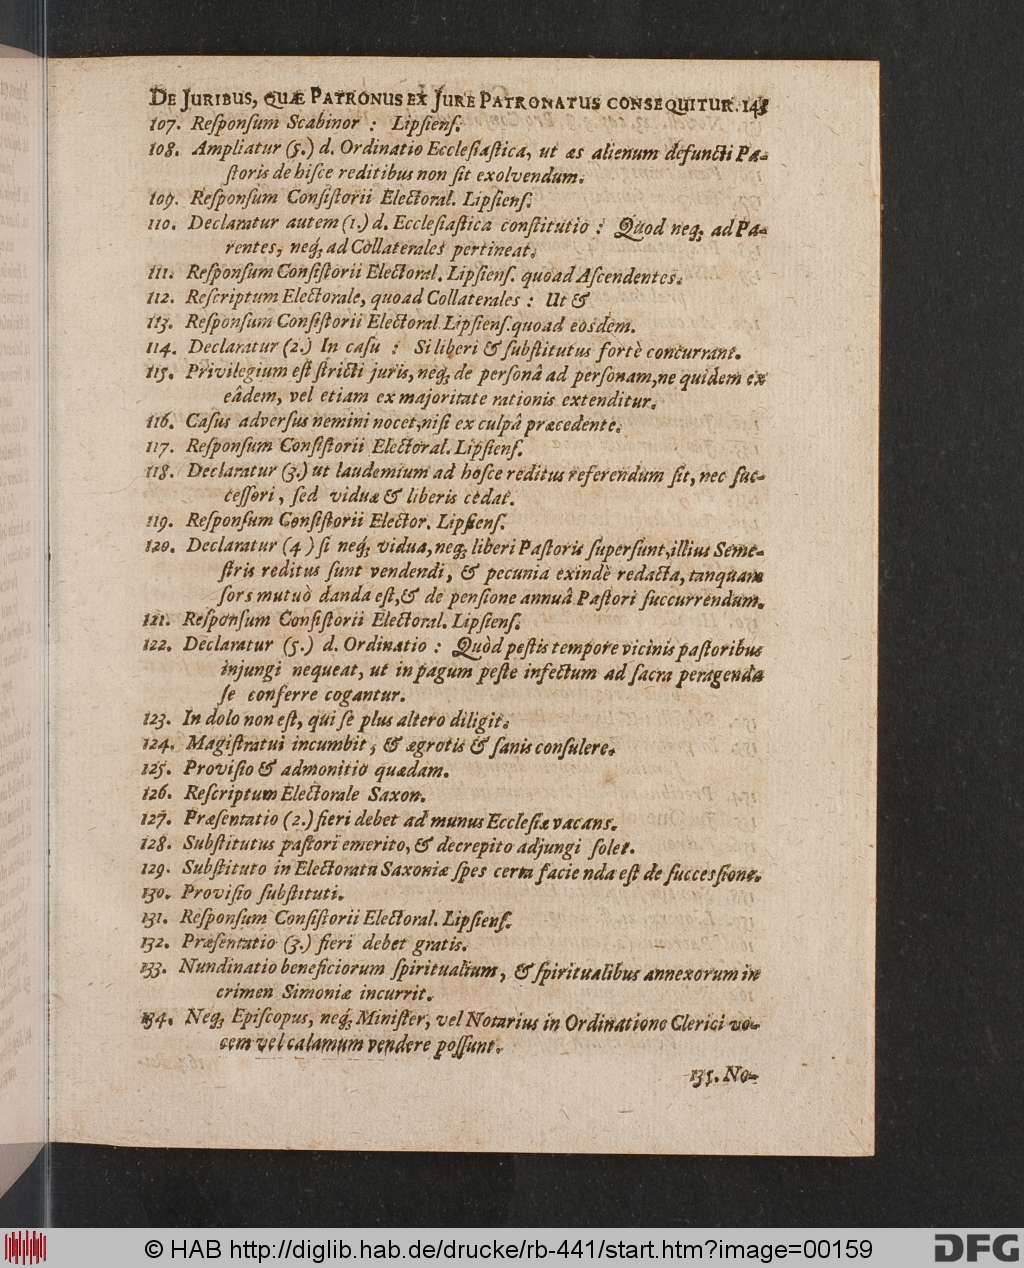 DE JURIBUS, QUÆ PATRONUS EX JURE PATRONATUS CONSEQUITUR. 145
107. Reſponſum Scabinor : Lipſienſ.
108. Ampliatur (5.) d. Ordinatio Eccleſiaſtica, ut æs alienum defuncti Pa-
ſtoris de hiſce reditibus non ſit exolvendum.
109. Reſponſum Conſiſtorii Electoral. Lipſienſ.
110. Declaratur autem (1.) d. Eccleſiaſtica conſtitutio : Quod neq; ad Pa-
rentes, neq; ad Collaterales pertineat.
111. Reſponſum Conſiſtorii Electoral. Lipſienſ. quoad Aſcendentes.
112. Reſcriptum Electorale, quoad Collaterales : Ut &
113. Reſponſum Conſiſtorii Electoral Lipſienſ. quoad eosdem.
114. Declaratur (2.) In caſu : Si liberi & ſubſtitutus fortè concurrant.
115. Privilegium eſt ſtricti juris, neq; de perſonâ ad perſonam, ne quidem ex
eâdem, vel etiam ex majoritate rationis extenditur.
116. Caſus adverſus nemini nocet, niſi ex culpâ præcedente.
117. Reſponſum Conſiſtorii Electoral. Lipſienſ.
118. Declaratur (3.) ut laudemium ad hoſce reditus referendum ſit, nec ſuc-
ceſſori, ſed viduæ & liberis cedat.
119. Reſponſum Conſiſtorii Elector. Lipſienſ.
120. Declaratur (4) ſi neq; vidua, neq; liberi Paſtoris ſuperſunt, illius Seme-
ſtris reditus ſunt vendendi, & pecunia exindè redacta, tanquam
ſors mutuò danda eſt, & de penſione annuâ Paſtori ſuccurrendum.
121. Reſponſum Conſiſtorii Electoral. Lipſienſ.
122. Declaratur (5.) d. Ordinatio : Quòd peſtis tempore vicinis paſtoribus
injungi nequeat, ut in pagum peſte infectum ad ſacra peragenda
ſe conferre cogantur.
123. In dolo non eſt, qui ſe plus altero diligit.
124. Magiſtratui incumbit, & ægrotis & ſanis conſulere.
125. Proviſio & admonitio quædam.
126. Reſcriptum Electorale Saxon.
127. Præſentatio (2.) fieri debet ad munus Eccleſiæ vacans.
128. Subſtitutus paſtori emerito, & decrepito adjungi ſolet.
129. Subſtituto in Electoratu Saxoniæ ſpes certa facienda eſt de ſucceſſione.
130. Proviſio ſubſtituti.
131. Reſponſum Conſiſtorii Electoral. Lipſienſ.
132. Præſentatio (3.) fieri debet gratis.
133. Nundinatio beneficiorum ſpiritualium, & ſpiritualibus annexorum in
crimen Simoniæ incurrit.
134. Neq; Epiſcopus, neq; Miniſter, vel Notarius in Ordinatione Clerici vo-
cem vel calamum vendere poſſunt.
135. No-
© HAB http://diglib.hab.de/drucke/rb-441/start.htm?image=00159
DFG